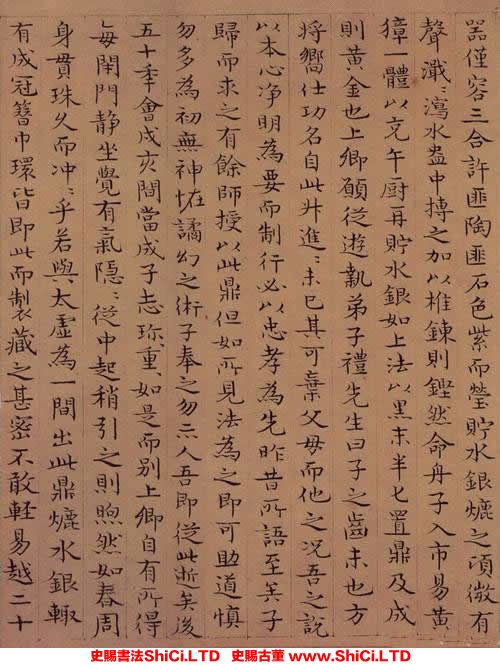 噐僅容三合許匪陶匪石色紫而瑩貯水銀爊之頃微有
聲瀺瀺瀉水盎中摶之加以椎鍊則鏗然命舟子入市易黄
獐一體以充午厨再貯水銀如上法以黒末半匕置鼎及成
則黄金也上卿願从遊執弟子禮先生曰子之齒未也方
將嚮仕功名自此升進未已其可棄父母而他之况吾之説
以本心浄明為要而制行必以忠孝為先昨昔所語至矣子
歸而求之有餘師授以此鼎但如所見法為之即可助道慎
勿多為初無神怪譎幻之術子奉之勿示人吾即從此逝矣後
五十季會戍亥間當成子志珎重如是而别上卿自有所得
每閉門静坐覺有氣隱隱從中起稍引之則煦然如春周
身貫珠久而冲冲乎若與太虚為一間出此鼎爊水銀輙
有成冠簪巾環皆即此而製藏之甚密不敢輕易越二十
史賜書法ShiCi.LTD 史賜古董 www.ShiCi.LTD